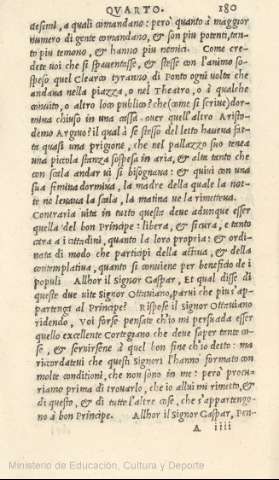 QVARTO. 180
desimi, a quali comandano: però quanto à maggior
numero di gente comandano, & son piu potenti, tan-
to piu temono, & hanno piu nemici. Come cre-
dete voi che si spauentasse, & stesse con l'animo so-
speso quel Clearco tyranno, di Ponto ogni volta che
andaua nella piazza, o nel Theatro, o à qualche
conuito, o altro loco publico? che (come si scriue) dor-
miua chiuso in una cassa. ouer quell'altro Aristo-
demo Argiuo? il qual à se stesso del letto haueua fat-
to quasi una prigione, che nel pallazzo suo tenea
una piccola stanza sospesa in aria, & alta tanto che
con scala andar ui si bisognaua: & quiui con una
sua femina dormiua, la madre della quale la not-
te ne leuaua la scala, la matina ue la rimetteua.
Contraria vita in tutto questa deue adunque esser
quella del bon Principe: libera, & sicura, e tanto
cara a i cittadini, quanto la loro propria: & ordi-
nata di modo che participi della actiua, & della
contemplatiua, quanto si conuiene per beneficio de i
populi Allhor il Signor Gaspar, Et qual disse di
queste due uite Signor Ottauiano, parui che piu s'ap-
partenga al Principe? Rispose il signor Ottauiano
ridendo, Voi forse pensate ch'io mi persuada esser
quello excellente Cortegiano che deue saper tante co-
se, & seruirsene à quel bon fine ch'io detto: ma
ricordateui che questi Signori l'hanno formato con
molte conditioni, che non sono in me: però procu-
riamo prima di trouarlo, che io allui mi rimetto, &
di questo, & di tutte l'altre cose, che s'appartengo-
no à bon Principe. Allhor il signor Gaspar, Pen-
A iiii
Ministerio de Educación, Cultura y Deporte